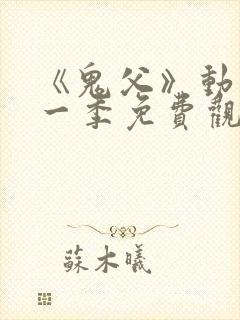 《鬼父》動
一季免費觀
蘇木曦